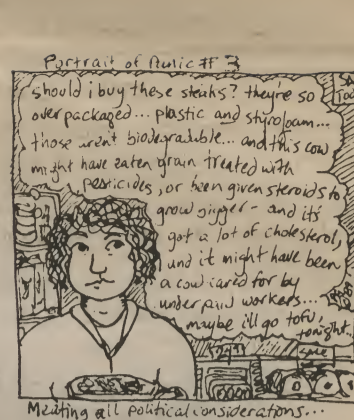 Portrait of Panic # 3
should i buy these steaks? they're so
overpackaged... plastic and styrofoam...
those aren't biodegradable... and this cow
might have eaten grain treated with
pesticides, or been given steroids to
grow bigger - and it's
got a lot of cholesterol,
and it might have been
a cow cared for by
underpaid workers...
maybe i'll go tofu,
tonight.
sale
Meating all political considerations...